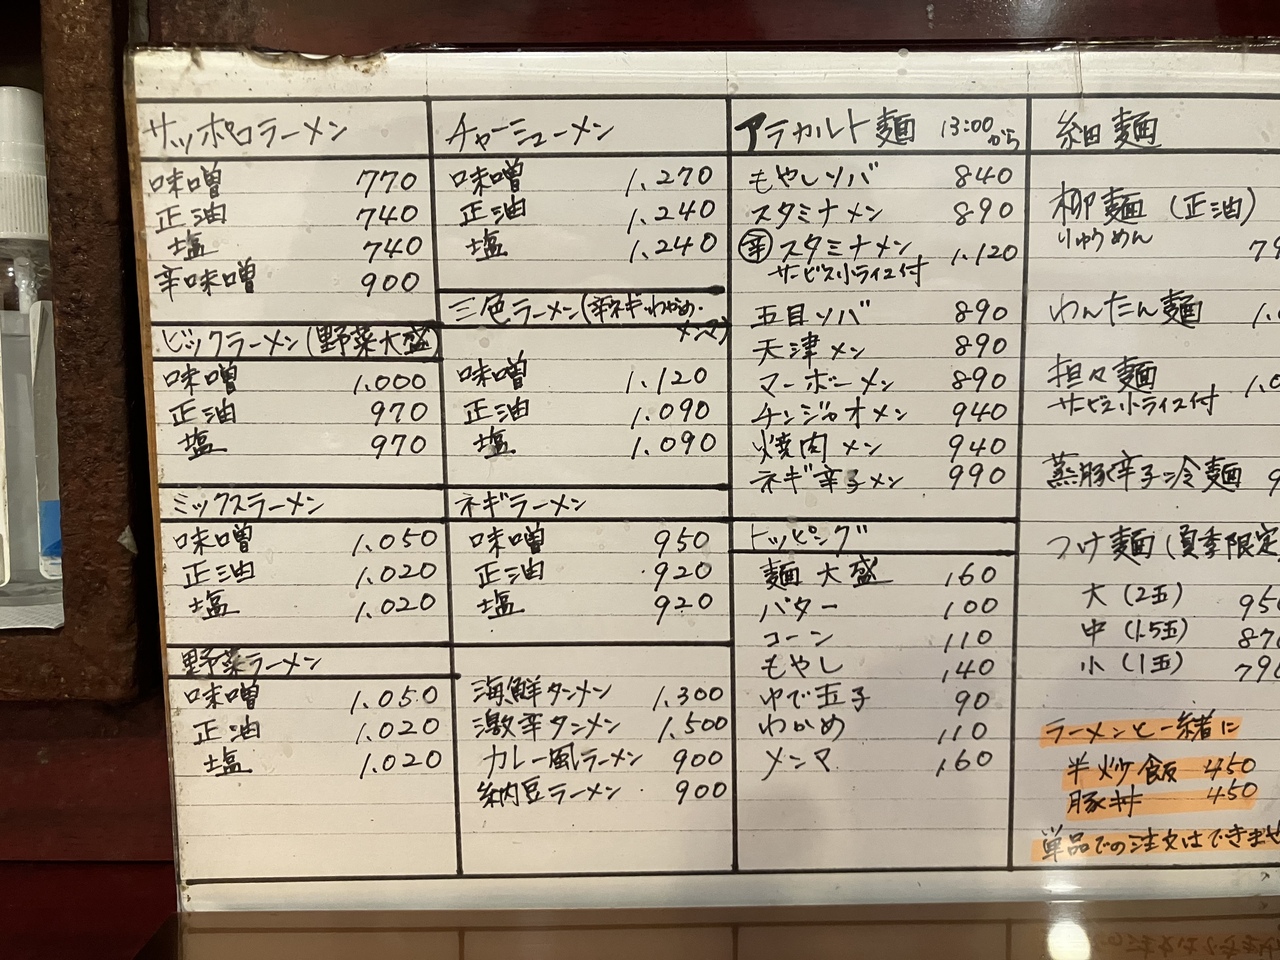 サッポロラーメン
味噌 770
正油 740
塩 740
辛味噌 900
ビックラーメン(野菜大盛)
味噌 1.000
正油 970
塩 970
ミックスラーメン
味噌 1.050
正油 1.020
塩 1.020
野菜ラーメン
味噌 1.050
正油 1.020
塩 1.020
チャーシューメン
味噌 1.270
正油 1.240
塩 1.240
三色ラーメン(辛ネギ・わかめ・
メンマ)
味噌 1.120
正油 1.090
塩 1.090
ネギラーメン
味噌 950
正油 920
塩 920
海鮮タンメン 1.300
激辛タンメン 1.500
カレー風ラーメン 900
納豆ラーメン 900
アラカルト麺 13:00から
もやしソバ 840
スタミナメン 890
辛スタミナメン 1.120
サービス小ライス付
五目ソバ 890
天津メン 890
マーボーメン 890
チンジャオメン 940
焼肉メン 940
ネギ辛子メン 990
トッピング
麺大盛 160
バター 100
コーン 110
もやし 140
ゆで玉子 90
わかめ 110
メンマ 160
細麺
柳麺(正油)
りゅうめん
わんたん麺
担々麺
サービス小ライス付
蒸豚辛子冷麺
つけ麺(夏季限定
大(2玉) 950
中(1.5玉) 870
小(1玉) 790
ラーメンと一緒に
半炒飯 450
豚丼 450
単品での注文はできませ